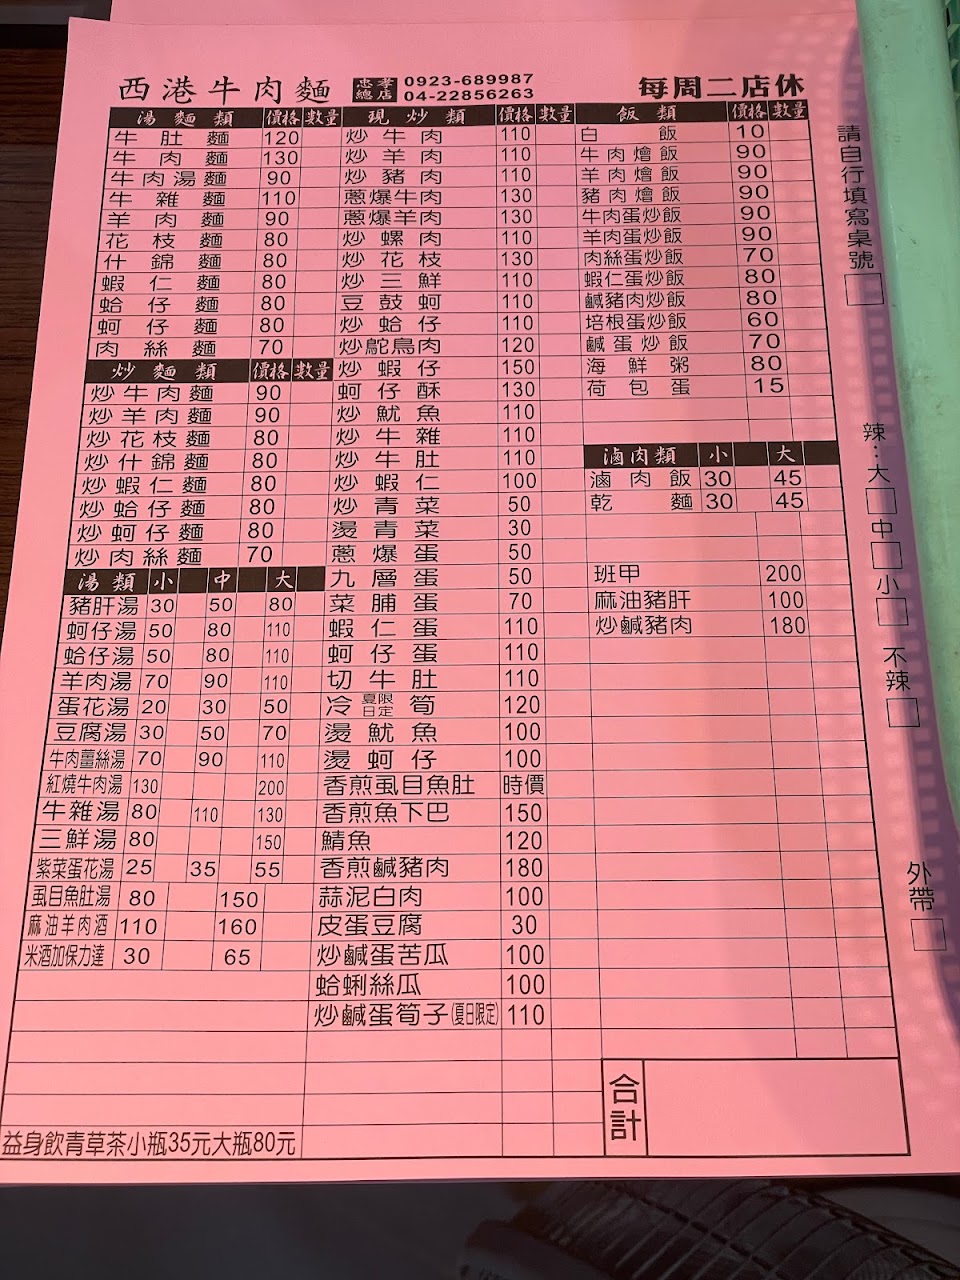 西港牛肉麵 忠孝總店 0923-689987 04-22856263 每周二店休
湯麵類 價格 數量
牛肚麵 120
牛肉麵 130
牛肉湯麵 90
牛雜麵 110
羊肉麵 90
花枝麵 80
什錦麵 80
蝦仁麵 80
蛤仔麵 80
蚵仔麵 80
肉絲麵 70
炒麵類 價格 數量
炒牛肉麵 90
炒羊肉麵 90
炒花枝麵 80
炒什錦麵 80
炒蝦仁麵 80
炒蛤仔麵 80
炒蚵仔麵 80
炒肉絲麵 70
湯類 小 中 大
豬肝湯 30 50 80
蚵仔湯 50 80 110
蛤仔湯 50 80 110
羊肉湯 70 90 110
蛋花湯 20 30 50
豆腐湯 30 50 70
牛肉薑絲湯 70 90 110
紅燒牛肉湯 130 200
牛雜湯 80 110 130
三鮮湯 80 150
紫菜蛋花湯 25 35 55
虱目魚肚湯 80 150
麻油羊肉酒 110 160
米酒加保力達 30 65
益身飲青草茶小瓶35元大瓶80元
現炒類 價格 數量
炒牛肉 110
炒羊肉 110
炒豬肉 110
蔥爆牛肉 130
蔥爆羊肉 130
炒螺肉 110
炒花枝 130
炒三鮮 110
豆鼓蚵 110
炒蛤仔 110
炒鴕鳥肉 120
炒蝦仔 150
蚵仔酥 130
炒魷魚 110
炒牛雜 110
炒牛肚 110
炒蝦仁 100
炒青菜 50
燙青菜 30
蔥爆蛋 50
九層蛋 50
菜脯蛋 70
蝦仁蛋 110
蚵仔蛋 110
切牛肚 110
冷夏日限定筍 120
燙魷魚 100
燙蚵仔 100
香煎虱目魚肚 時價
香煎魚下巴 150
鯖魚 120
香煎鹹豬肉 180
蒜泥白肉 100
皮蛋豆腐 30
炒鹹蛋苦瓜 100
蛤蜊絲瓜 100
炒鹹蛋筍子(夏日限定) 110
飯類 價格 數量
白飯 10
牛肉燴飯 90
羊肉燴飯 90
豬肉燴飯 90
牛肉蛋炒飯 90
羊肉蛋炒飯 90
肉絲蛋炒飯 70
蝦仁蛋炒飯 80
鹹豬肉炒飯 80
培根蛋炒飯 60
鹹蛋炒飯 70
海鮮粥 80
荷包蛋 15
滷肉類 小 大
滷肉飯 30 45
乾麵 30 45
班甲 200
麻油豬肝 100
炒鹹豬肉 180
合計
請自行填寫桌號
辣：大 中 小 不辣
外帶